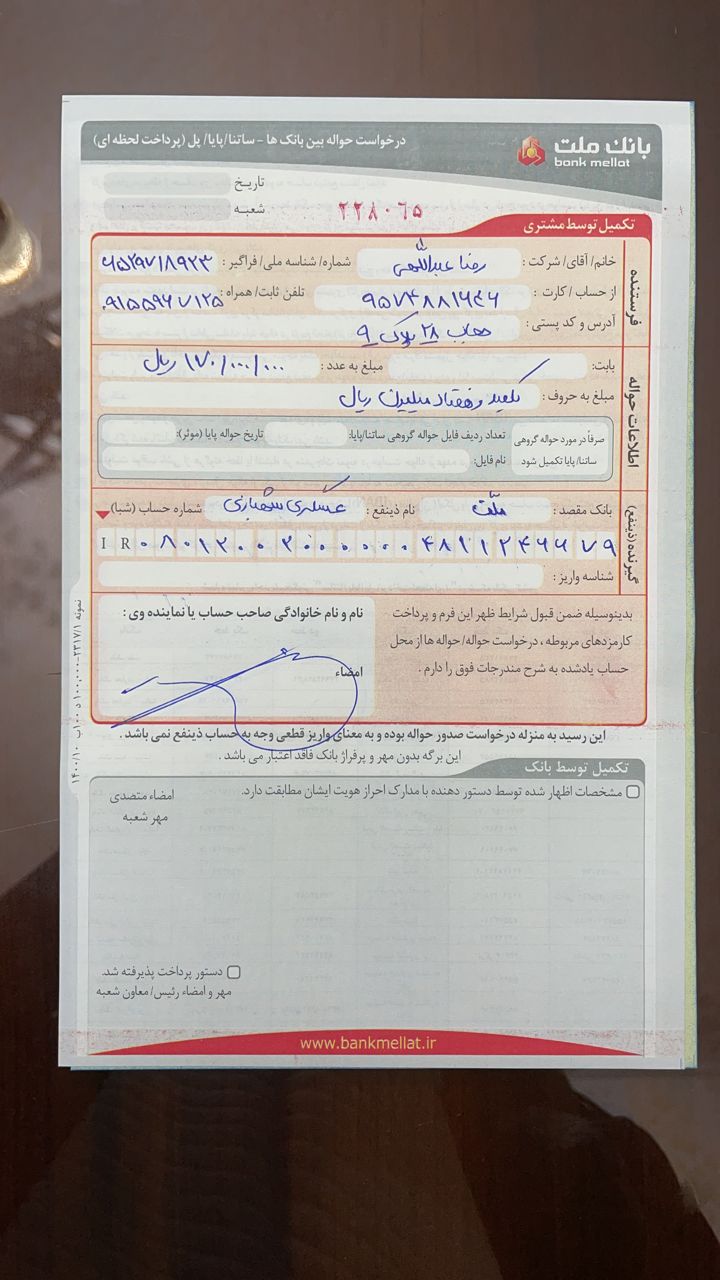 بانک ملت
bank mellat
درخواست حواله بین بانک ها - ساتنا/پایا/ پل (پرداخت لحظه ای)
تاریخ
شعبه
۲۲۸۰۶۵
تکمیل توسط مشتری
فرستنده
خانم/ آقای/ شرکت : رضا عبداللهی شماره/ شناسه ملی/ فراگیر :
از حساب / کارت : تلفن ثابت/ همراه :
آدرس و کد پستی : ۲۸ پلاک ۹
اطلاعات حواله
بابت: مبلغ به عدد : ۱۷۰/۰۰۰/۰۰۰ ریال
مبلغ به حروف : یکصد و هفتاد میلیون ریال
صرفاً در مورد حواله گروهی ساتنا/پایا تکمیل شود
تعداد ردیف فایل حواله گروهی ساتنا/پایا: تاریخ حواله پایا (موثر):
نام فایل:
گیرنده (ذینفع)
بانک مقصد : ملت نام ذینفع : عسکری شهبازی شماره حساب (شبا)
IR
شناسه واریز :
بدینوسیله ضمن قبول شرایط ظهر این فرم و پرداخت
کارمزدهای مربوطه ، درخواست حواله/ حواله ها از محل
حساب یادشده به شرح مندرجات فوق را دارم .
نام و نام خانوادگی صاحب حساب یا نماینده وی :
امضاء
این رسید به منزله درخواست صدور حواله بوده و به معنای واریز قطعی وجه به حساب ذینفع نمی باشد .
این برگه بدون مهر و پرفراژ بانک فاقد اعتبار می باشد .
تکمیل توسط بانک
مشخصات اظهار شده توسط دستور دهنده با مدارک احراز هویت ایشان مطابقت دارد.
امضاء متصدی
مهر شعبه
دستور پرداخت پذیرفته شد.
مهر و امضاء رئیس/ معاون شعبه
www.bankmellat.ir